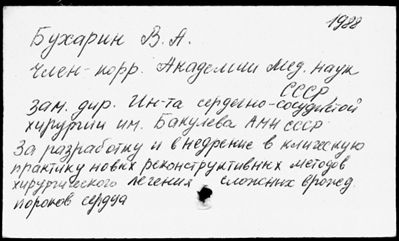 1988
Бухарин В. А.
Член-корр. Академии Мед. наук
СССР
Зам. дир. Ин-та сердечно-сосудистой
хирургии им. Бакулева АМН СССР
За разработку и внедрение в клиническую
практику новых реконструктивных методов
хирургического лечения сложных врожд.
пороков сердца